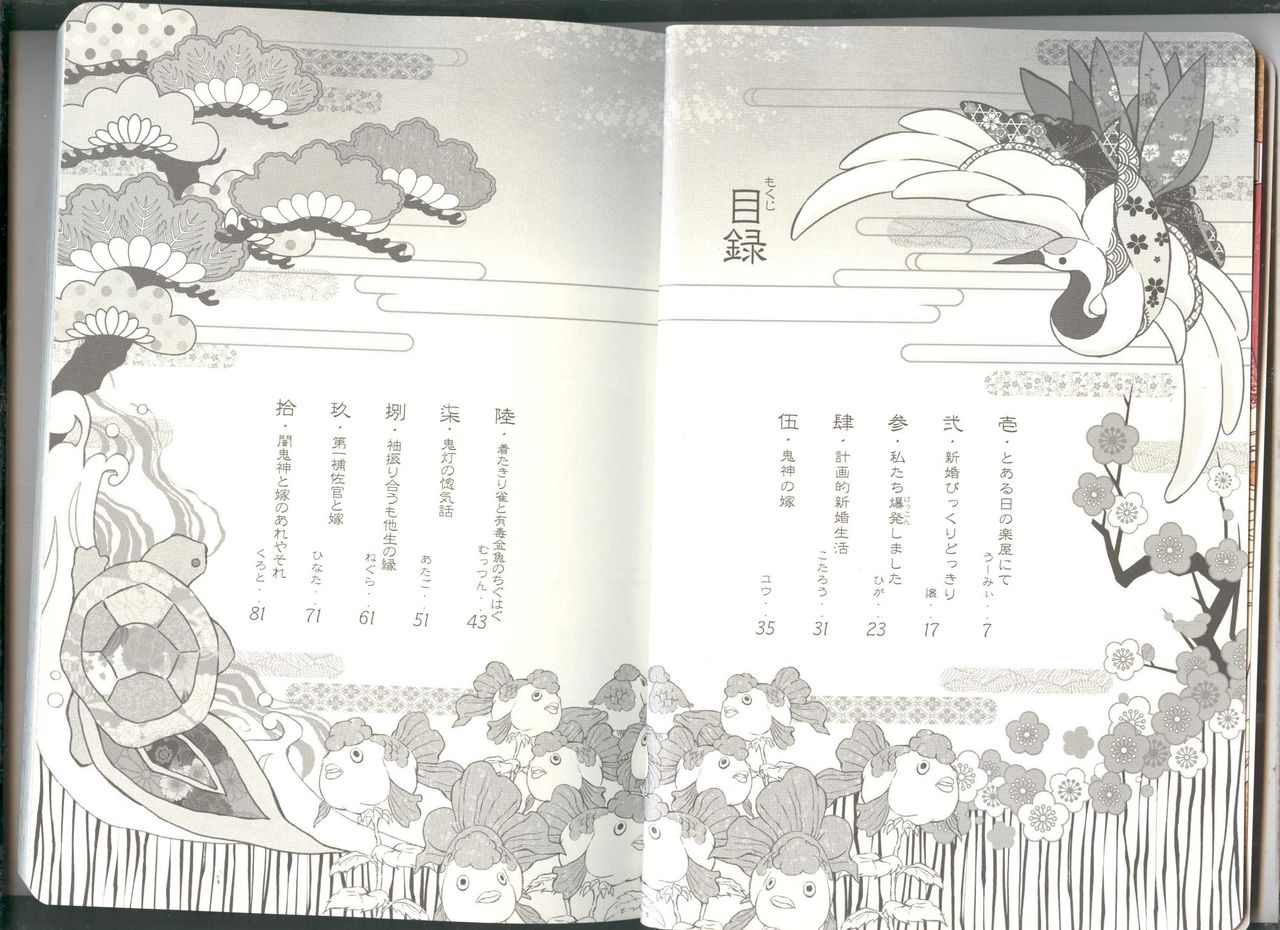 目録
もくじ
壱・とある日の楽屋にて
うーみぃ・・・7
弐・新婚びっくりどっきり
譲・・・17
参・私たち爆発しました
けっこん
ひが・・・23
肆・計画的新婚生活
こたろう・・・31
伍・鬼神の嫁
ユウ・・・35
陸・着たきり雀と有毒金魚のちぐはぐ
むっつん・・・43
柒・鬼灯の惚気話
あたご・・・51
捌・袖振り合うも他生の縁
ねぐら・・・61
玖・第一補佐官と嫁
ひなた・・・71
拾・闇鬼神と嫁のあれやそれ
くろと・・・81